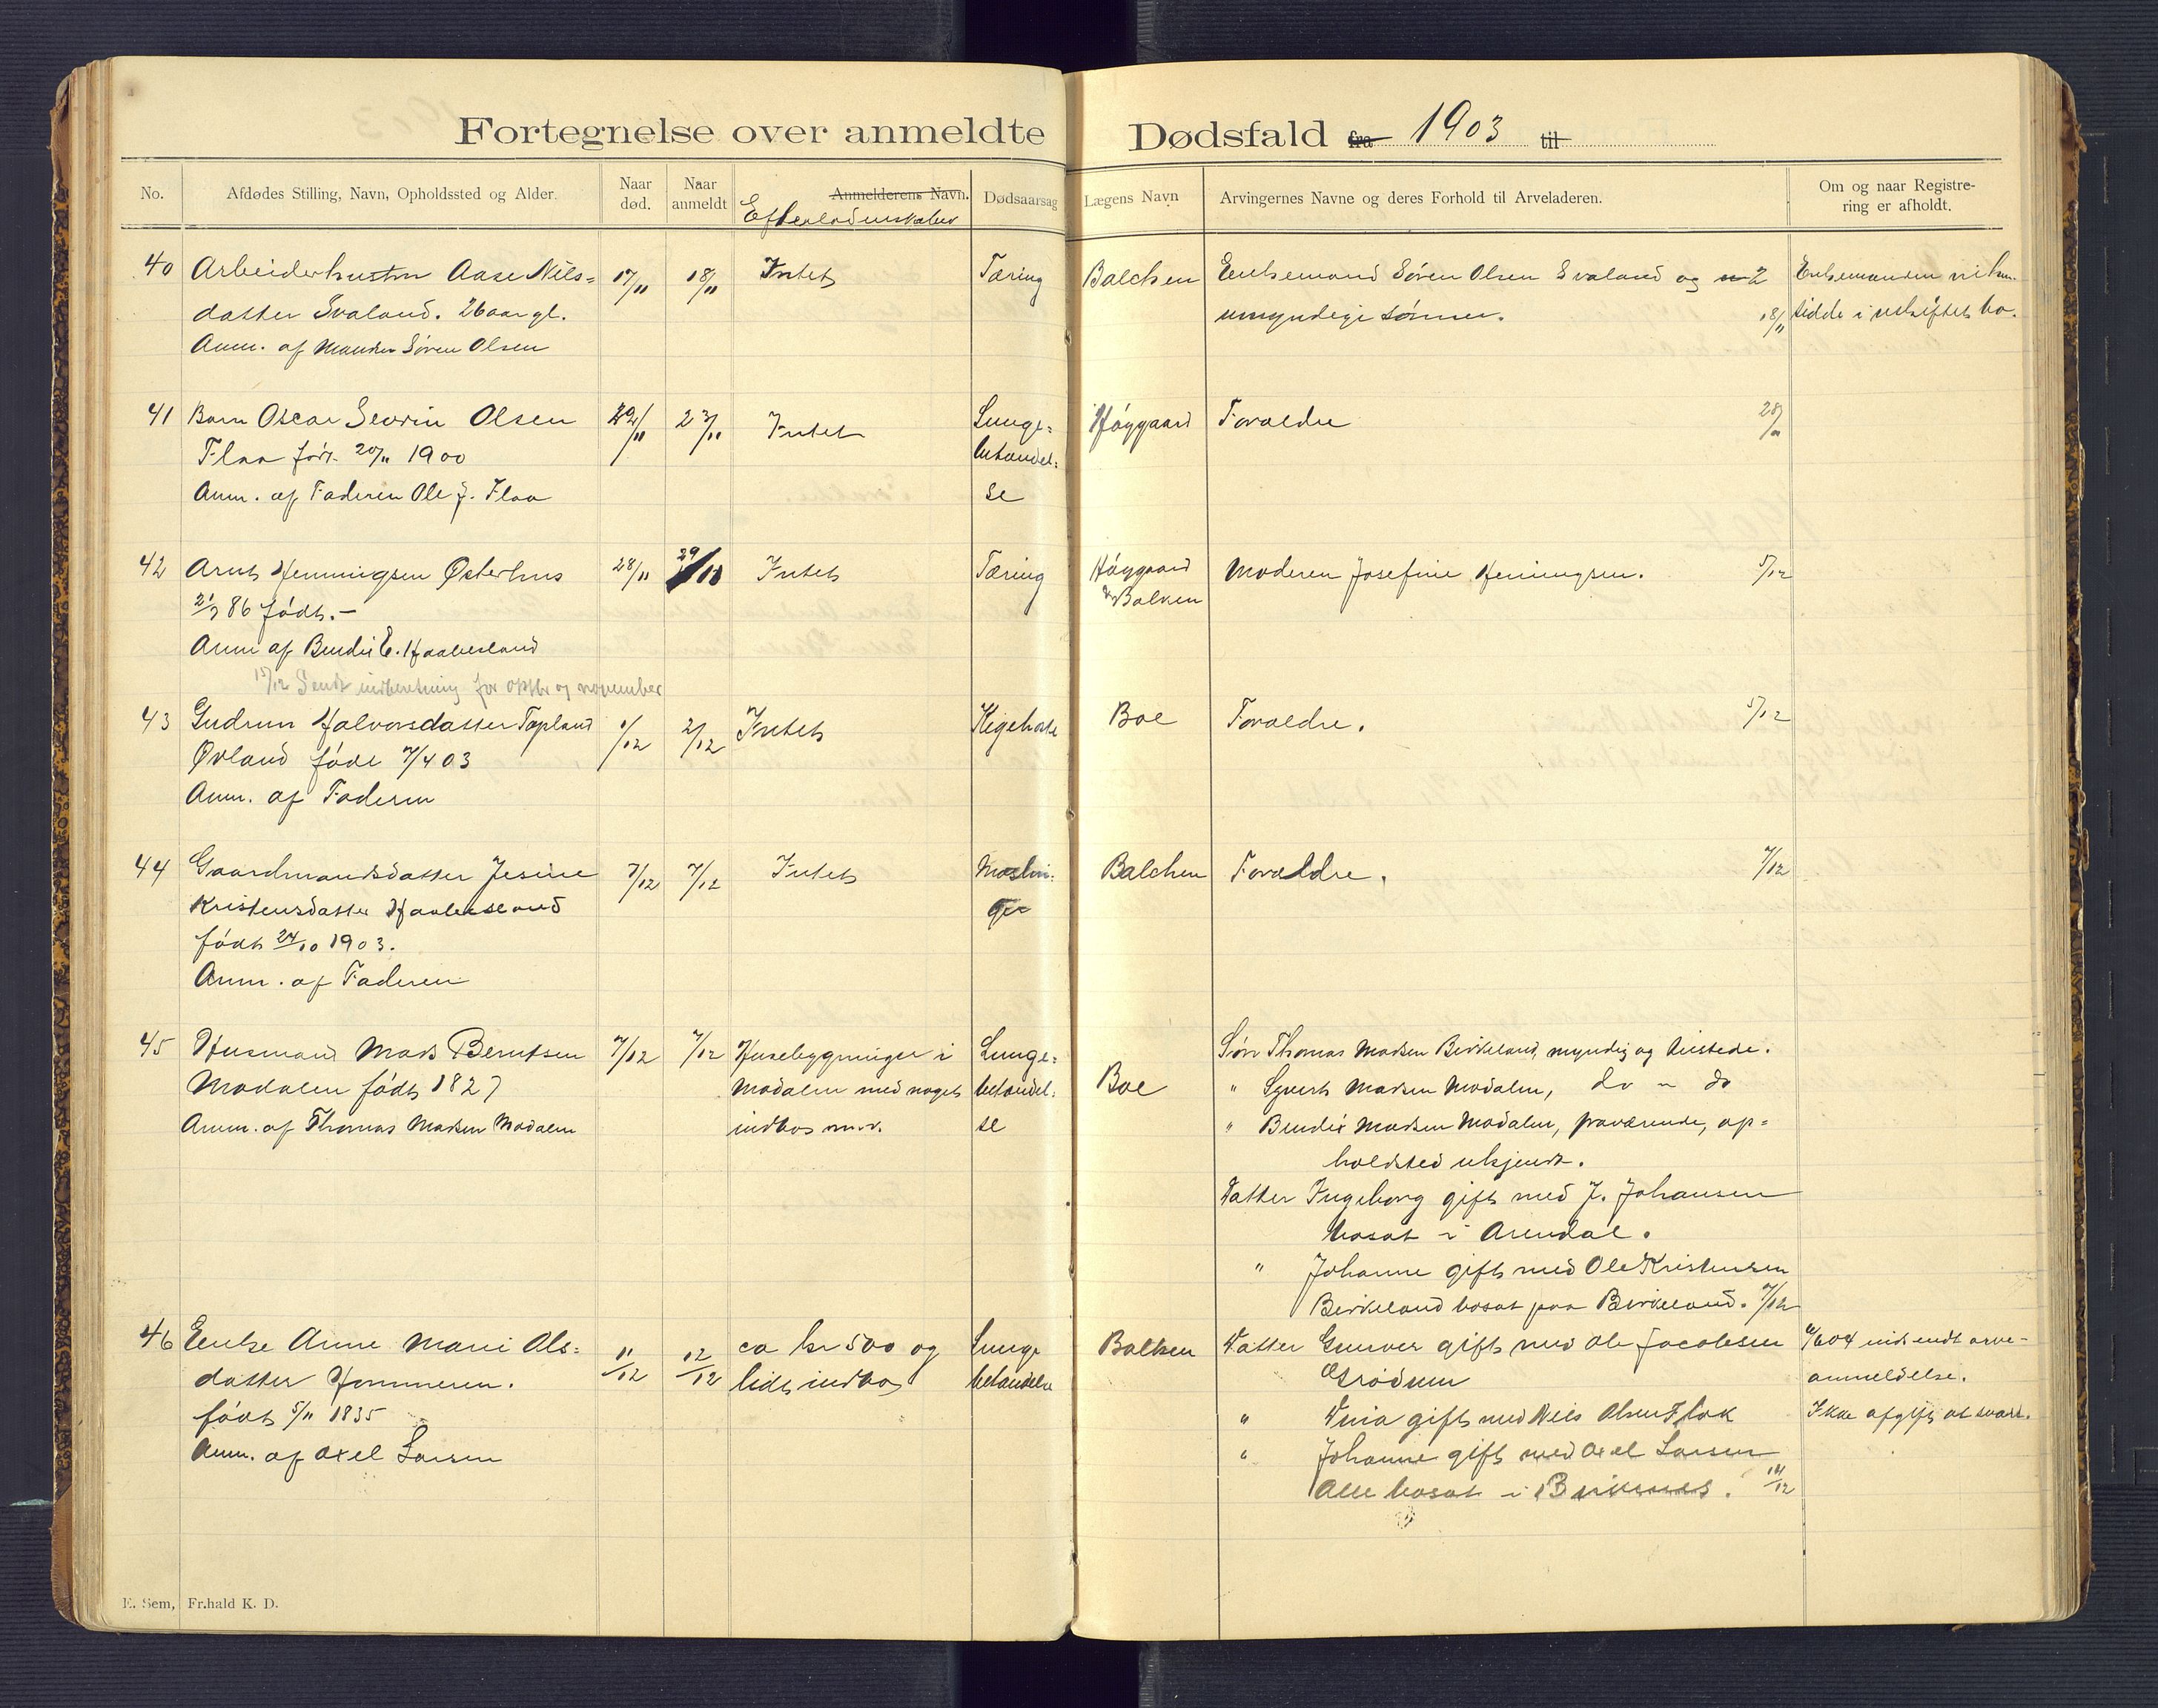 Fortegnelse over anmeldte Dødsfald fra 1903 til
No. Afdødes Stilling, Navn, Opholdssted og Alder. Naar død. Naar anmeldt Anmelderens Navn. Efterladenskaber Dødsaarsag Lægens Navn Arvingernes Navne og deres Forhold til Arveladeren. Om og naar Registrering er afholdt.
40 Arbeiderhustru Aase Nils= 17/11 18/11 Intet Tæring Balchen Enkemand Søren Olsen Svaland og 2 Enkemanden vil hen-
datter Svaland. 26 aar gl. umyndige sønner. 18/11 sidde i uskiftet bo.
Anm. af Manden Søren Olsen
41 Barn Oscar Severin Olsen 22/11 23/11 Intet Lunge= Høygaard Forældre 28/11
Flaa født 20/11 1900 betændel=
Anm. af Faderen Ole J. Flaa se
42 Arnt Henningsen Østerhus 28/11 29/11 Intet Tæring Høygaard Moderen Josefine Henningsen. 5/12
21/3 86 født.- & Balken
Anm af Bendix E. Haabesland
15/12 Sendt indberetning for oktbr og november
43 Gudrun Halvorsdatter Topland 1/12 2/12 Intet Kighoste Boe Forældre. 5/12
Øvland født 7/4 03
Anm. af Faderen
44 Gaardmandsdatter Jesine 7/12 7/12 Intet Mæslin= Balchen Forældre. 7/12
Kristensdatter Haabesland ger
født 24/10 1903.
Anm. af Faderen
45 Husmand Mads Berntsen 7/12 7/12 Husebygninger i Lunge= Boe Søn Thomas Madsen Birkeland, myndig og tilstede.
Modalen født 1827 Modalen med noget betændel= " Syvert Madsen Modalen, do - do
Anm. af Thomas Madsen Modalen indbo m.v. se " Bendix Madsen Modalen, fraværende, op=
holdsted ukjendt.
Datter Ingeborg gift med J. Johansen
bosat i Arendal.
" Johanne gift med Ole Kristensen
Birkeland bosat paa Birkeland. 7/12
46 Enke Anne Marie Ols= 11/12 12/12 ca kr 500 og Lunge Balken Datter Gunvor gift med Ole Jacobsen 6/6 04 indsendt arve-
datter Hommeren. lidt indbo betændelse Grødum anmeldelse.
født 5/11 1835 " gift med Nils Olsen Flak Ikke afgift at svare.
Anm. af Axel Larsen " Johanne gift med Axel Larsen
Alle bosat i Birkenes. 14/12
E. Sem, Fr.hald K. D.